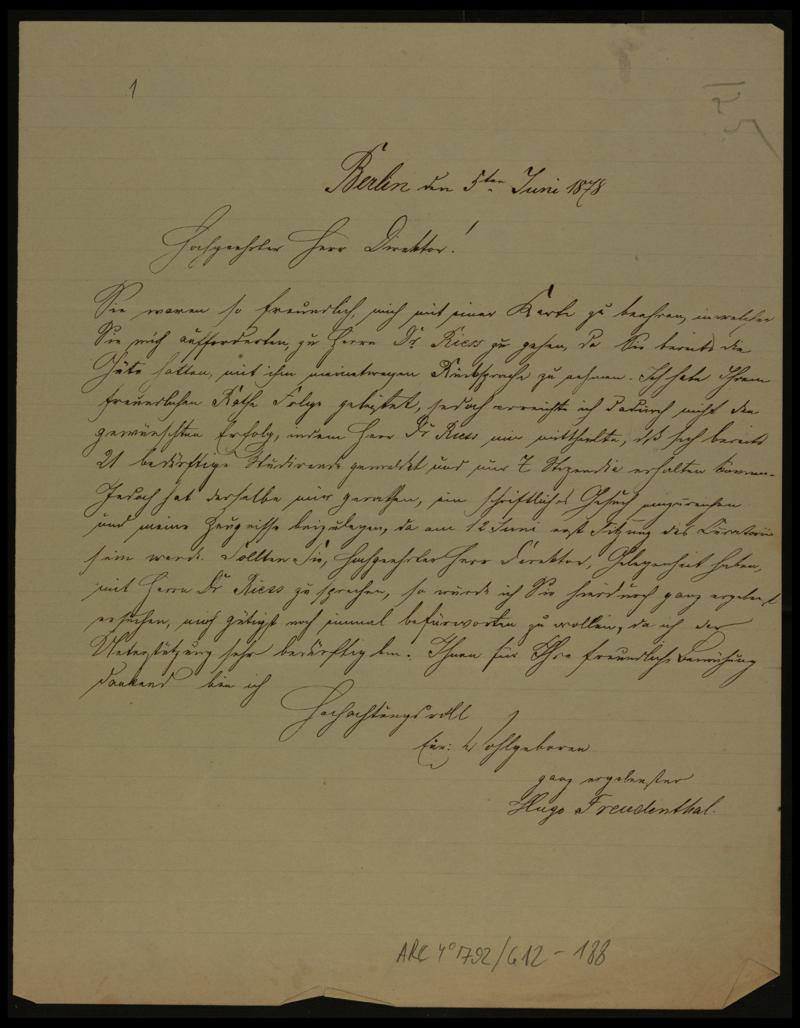 1
Berlin den 5ten Juni 1878
Hochgeehrter Herr Direktor!
Sie waren so freundlich, mich mit einer Karte zu beehren, in welcher
Sie mich aufforderten, zu Herrn Dr. Riess zu gehen, da Sie bereits die
Güte hatten, mit ihm meinetwegen Rücksprache zu nehmen. Ich habe Ihrem
freundlichen Rathe Folge geleistet, jedoch erreichte ich dadurch nicht den
gewünschten Erfolg, indem Herr Dr Riess mir mittheilte, daß sich bereits
21 bedürftige Studirende gemeldet und nur 7 Stipendia erhalten können.
Jedoch hat derselbe mir gerathen, ein schriftliches Gesuch einzureichen
und meine Zeugnisse beizulegen, da am 12 Juni erst Sitzung des Curatoriums
sein werde. Sollten Sie, Hochgeehrter Herr Direktor, Gelegenheit haben,
mit Herrn Dr Riess zu sprechen, so würde ich Sie hierdurch ganz ergebenst
ersuchen, mich gütigst noch einmal befürworten zu wollen, da ich der
Unterstützung sehr bedürftig bin. Ihnen für Ihre freundliche Bemühung
dankend bin ich
Hochachtungsvoll
Eur: Wohlgeboren
ganz ergebenster
Hugo Freudenthal.
ARC 4° 1792/G12-188